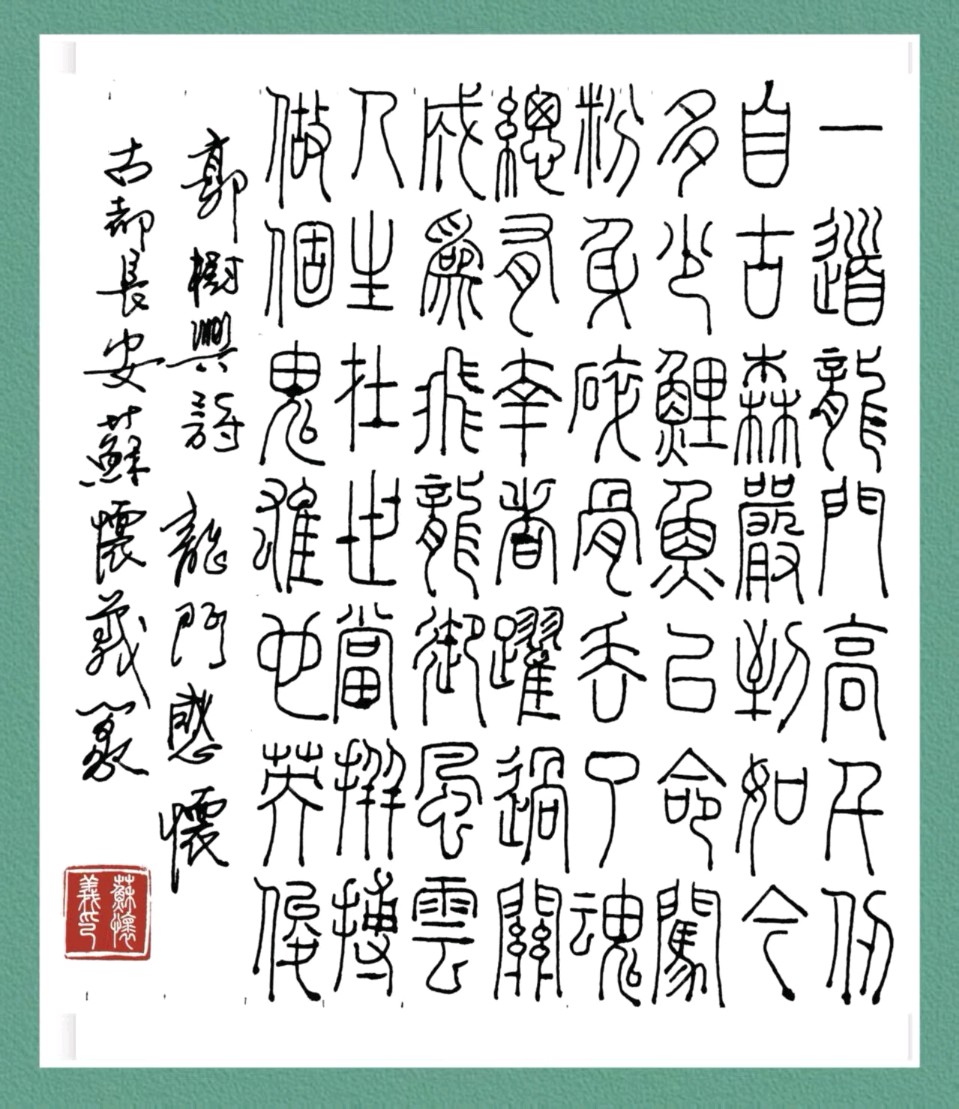 一道龍門高千仞
自古森嚴到如今
多少鯉魚以命闖
粉身碎骨丟了魂
總有幸者躍過關
成為飛龍御風雲
人生在世當拼搏
做個鬼雄也英俊
郭樹興詩 龍門感懷
古都長安蘇懷義篆
蘇懷義印